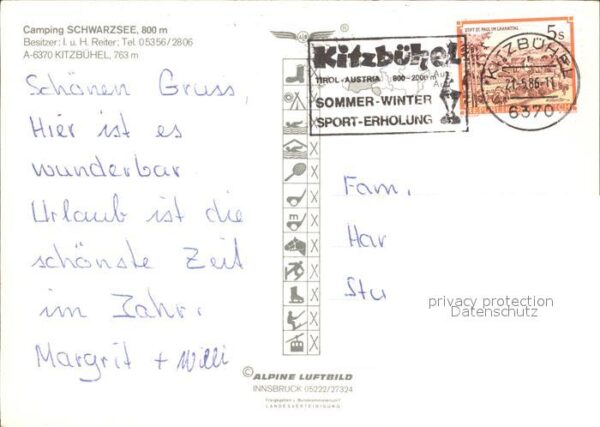 Camping SCHWARZSEE, 800 m
Besitzer: I. u. H. Reiter; Tel. 05356/2806
A-6370 KITZBÜHEL, 763 m
Schönen Gruss
Hier ist es
wunderbar
Urlaub ist die
schönste Zeit
im Jahr.
Margrit + Willi
Kitzbühel
TIROL-AUSTRIA 800-2000 m
SOMMER-WINTER
SPORT-ERHOLUNG
STIFT ST. PAUL IM LAVANTTAL
5 S
KITZBÜHEL
6370
Fam.
Har
Stu
privacy protection
Datenschutz
© ALPINE LUFTBILD
INNSBRUCK 05222/27324
LANDESVERTEIDIGUNG